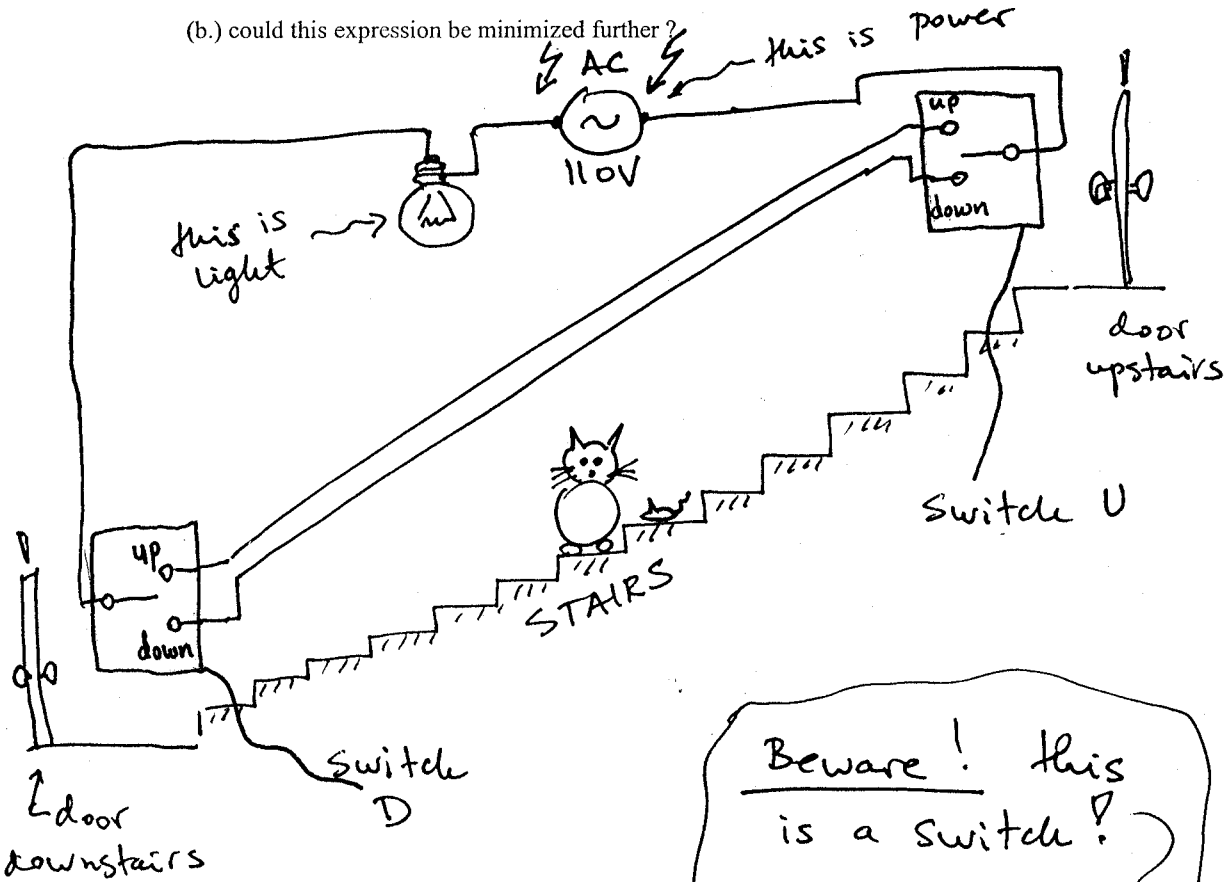 (b.) could this expression be minimized further ?
this is power
AC
~
110V
up
down
this is
light
door
upstairs
Switch U
STAIRS
up
down
Switch
D
door
downstairs
Beware! this
is a switch!